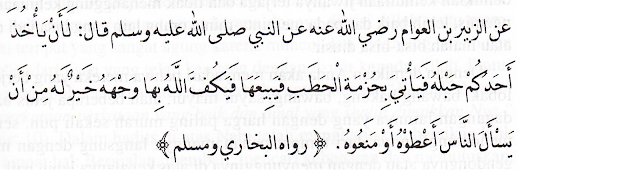 عن الزبير بن العوام رضي الله عنه عن النبي صلى الله عليه وسلم قال: لَأَنْ يَأْخُذَ
أَحَدُكُمْ حَبْلَهُ فَيَأْتِي بِحُزْمَةِ الْحَطَبِ فَيَبِيعَهَا فَيَكُفَّ اللَّهُ بِهَا وَجْهَهُ خَيْرٌ لَهُ مِنْ أَنْ
يَسْأَلَ النَّاسَ أَعْطَوْهُ أَوْ مَنَعُوهُ. ﴿رواه البخاري ومسلم﴾